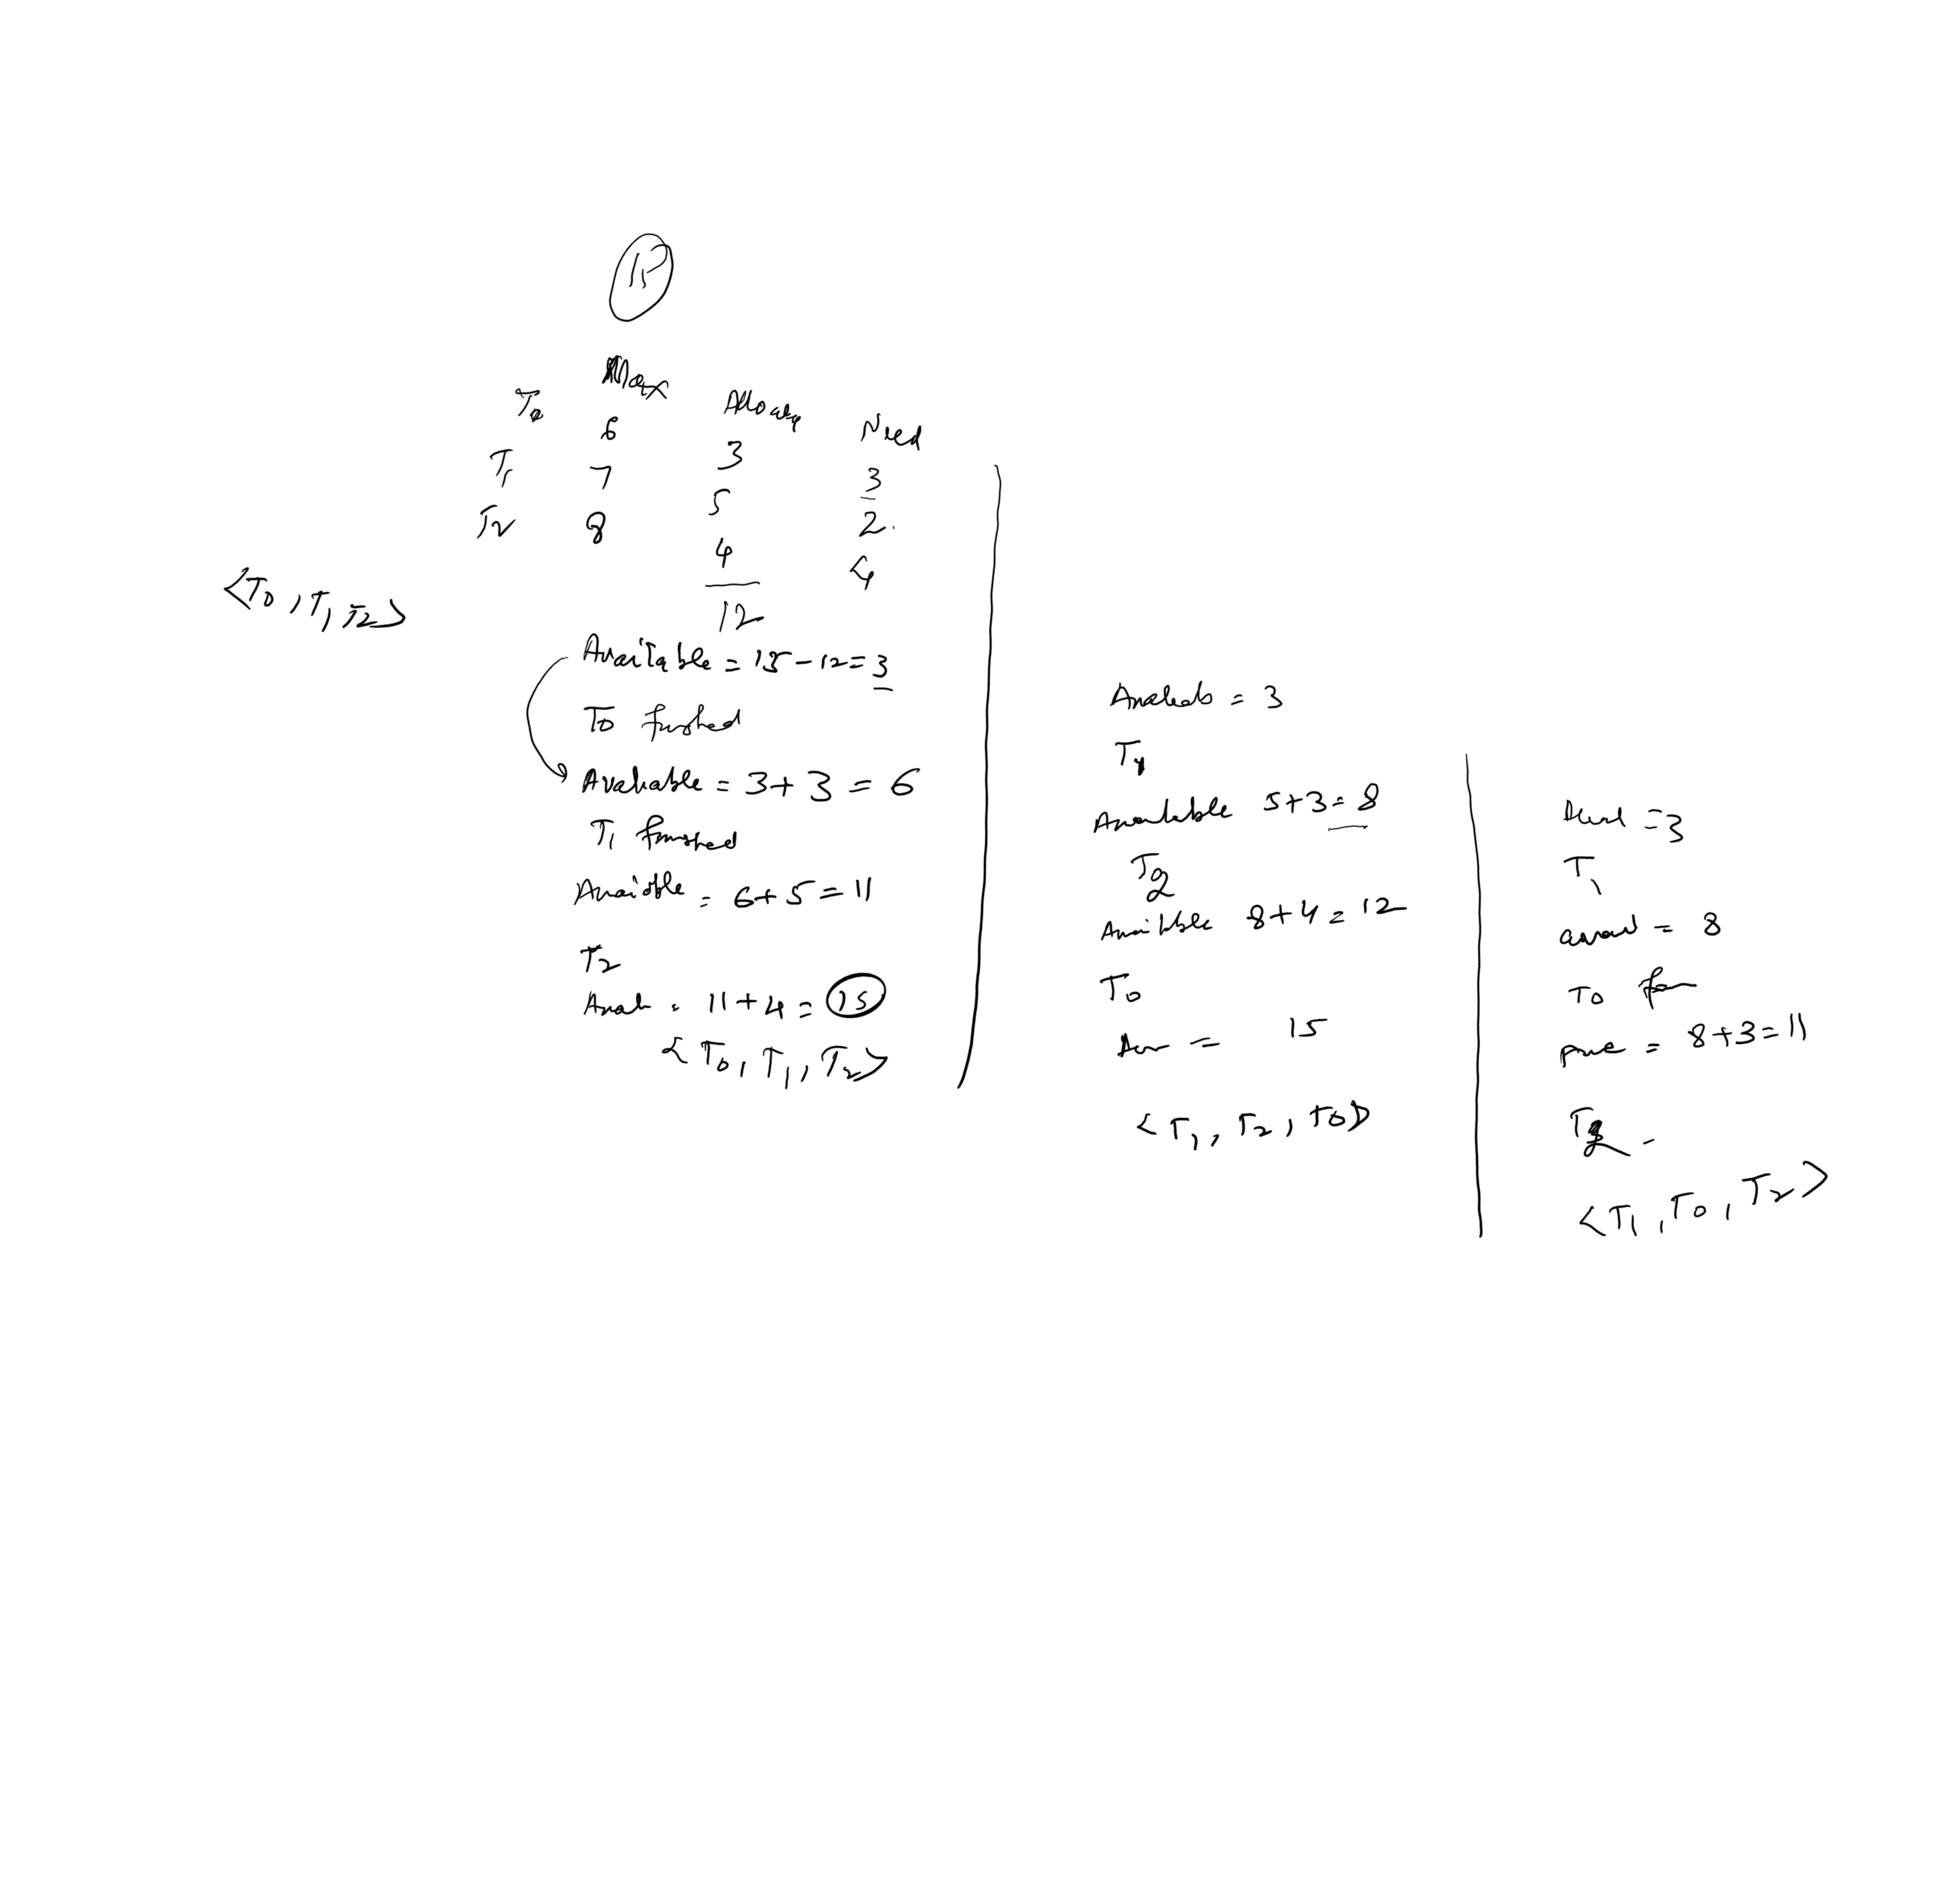 15
Max Need
T0 6 3 3
T1 7 5 2
T2 8 4 4
12
<T0, T1, T2>
Available = 15-12=3
T0 finished
Available = 3+3=6
T1 finished
Available = 6+5=11
T2
Avail = 11+4=15
<T0, T1, T2>
= 3
T1
Available 5+3=8
T2
Available 8+4=12
T0
= 15
<T1, T2, T0>
=3
T1
= 8
T0
= 8+3=11
T2 -
<T1, T0, T2>